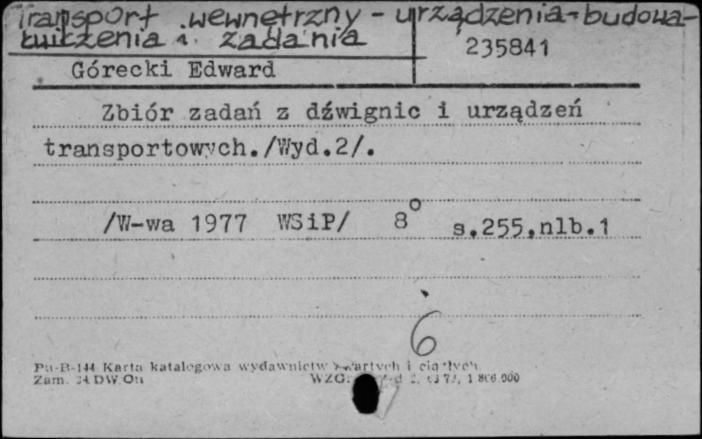 Transport wewnętrzny - urządzenia - budowa -
ćwiczenia i zadania
235841
Górecki Edward
Zbiór zadań z dźwignic i urządzeń
transportowych./Wyd.2/.
/W-wa 1977 WSiP/ 8° s.255,nlb.1
6
Pu-B-144 Karta katalogowa wydawnictw zwartych i ciągłych
Zam. DW WZG.